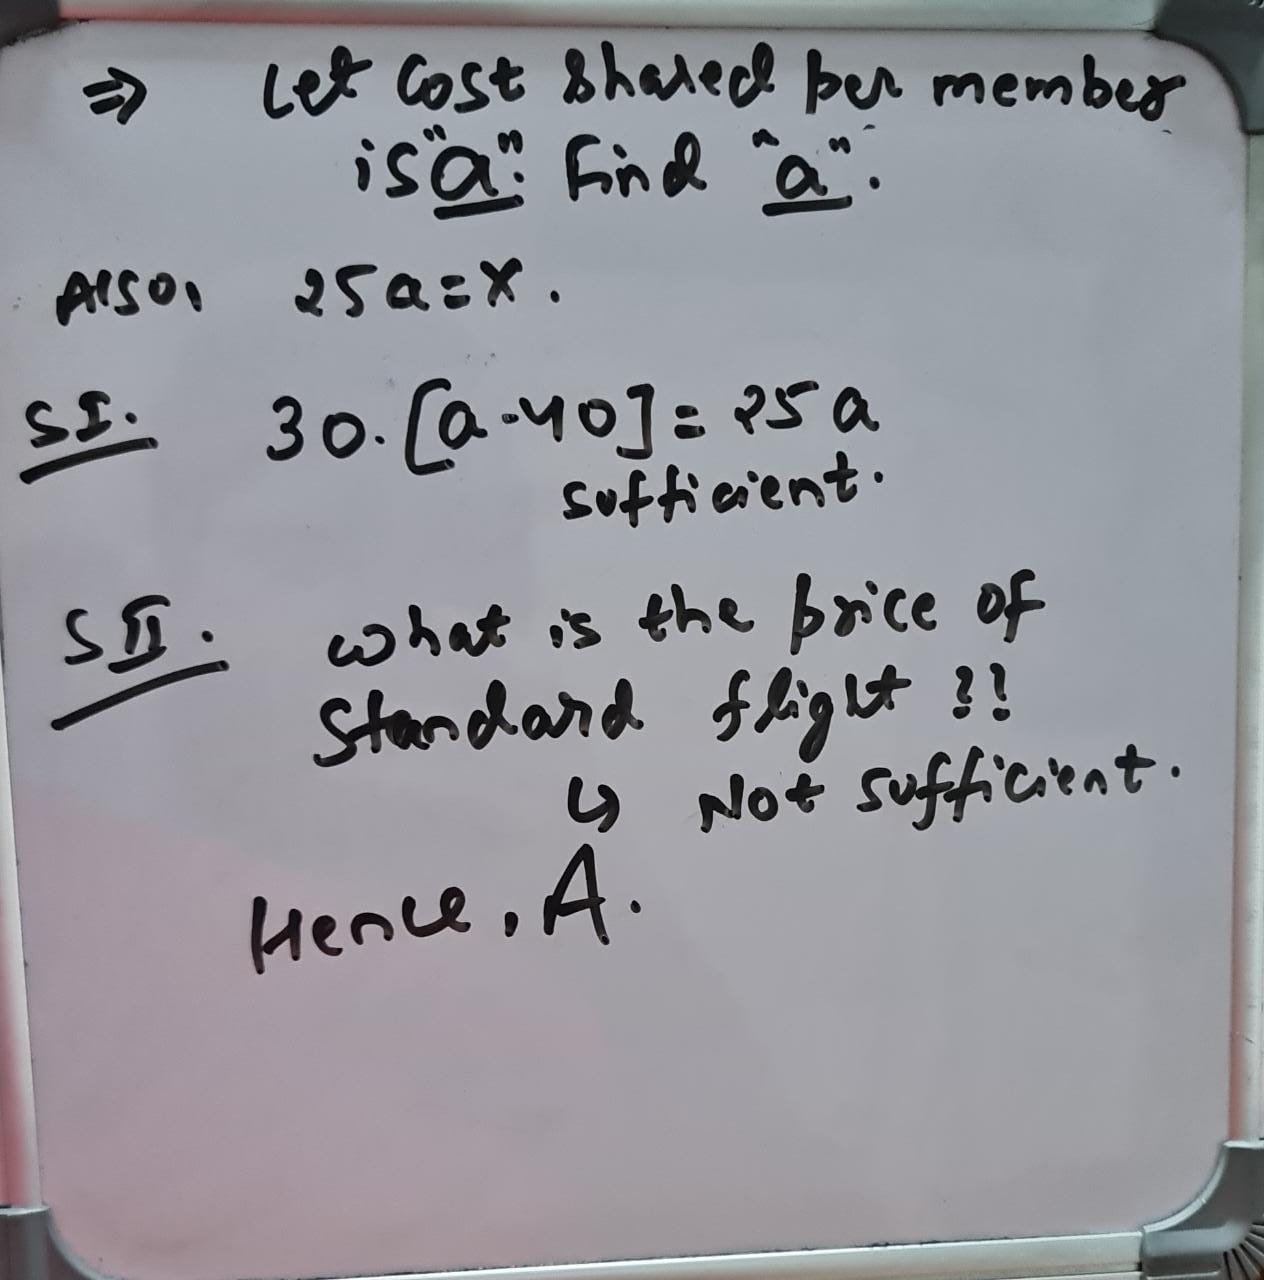 ⇒ Let Cost shared per member
is "a". Find "a".
Also, 25a=x.
SI. 30.[a-40]=25a
sufficient.
SII. what is the price of
Standard flight ??
↳ Not sufficient.
Hence, A.